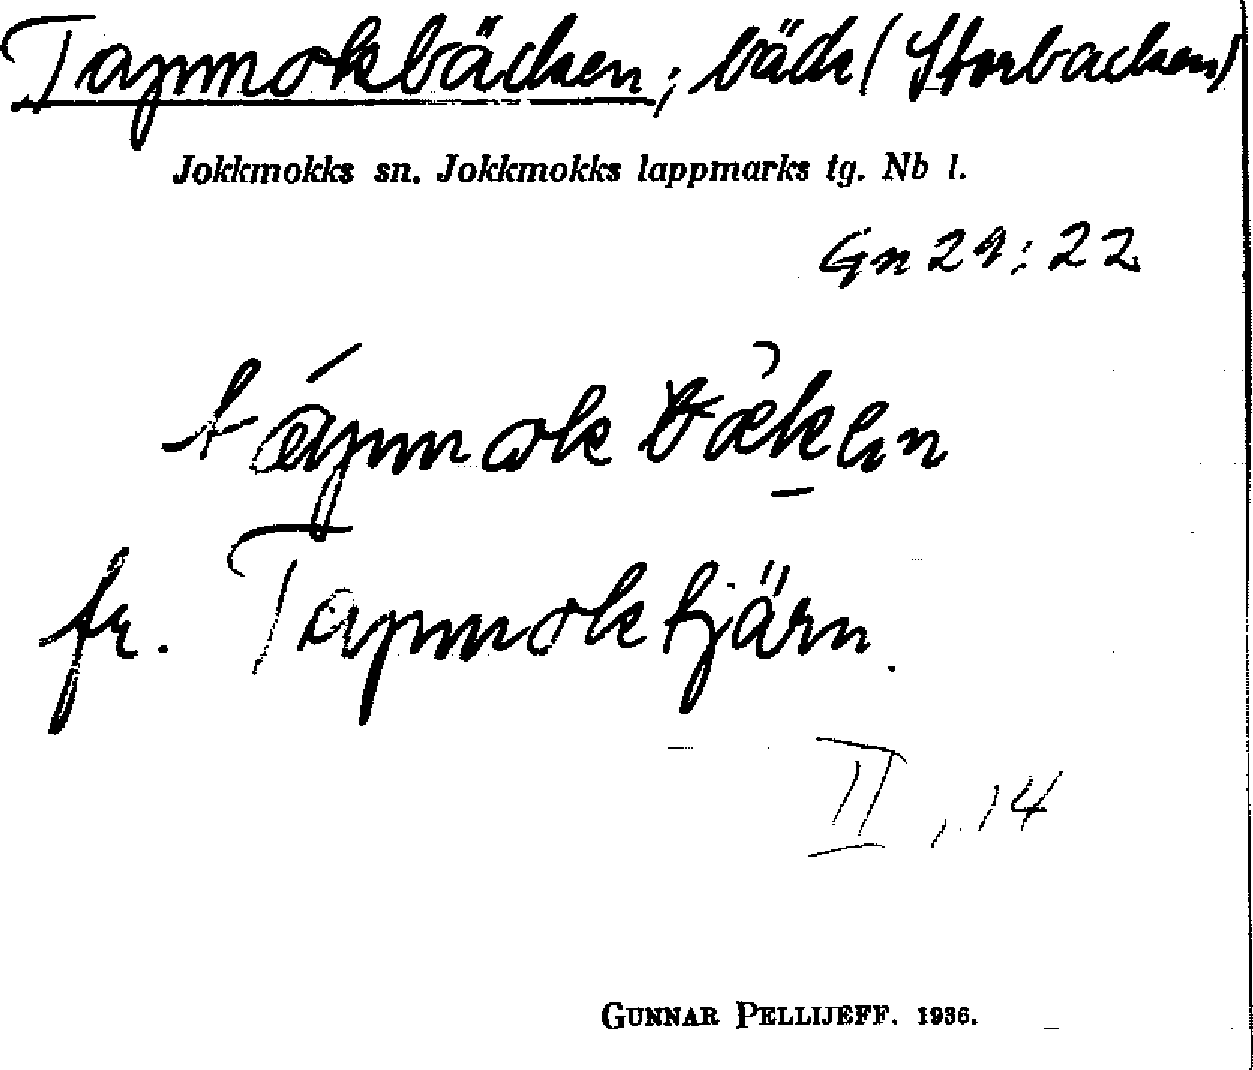 Tapmokbäcken, bäck (Storbacken)
Jokkmokks sn. Jokkmokks lappmarks tg. Nb l.
Gn 29:22
fr. Tapmoktjärn.
II, 14
GUNNAR PELLIJEFF. 1936.